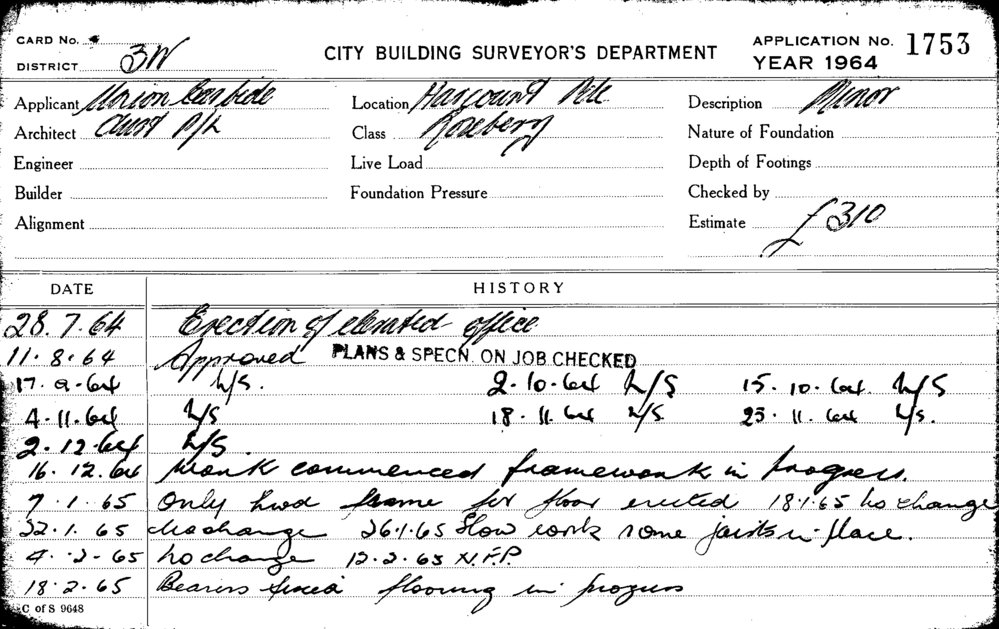 CARD No.
DISTRICT 3W
CITY BUILDING SURVEYOR'S DEPARTMENT
APPLICATION No. 1753
YEAR 1964
Applicant Union Carbide Location Harcourt Pde Description Minor
Architect Aust P/L Class Rosebery Nature of Foundation
Engineer Live Load Depth of Footings
Builder Foundation Pressure Checked by
Alignment Estimate £310
DATE HISTORY
28.7.64 Erection of elevated office
11.8.64 Approved PLANS & SPECN. ON JOB CHECKED
17.9.64 N/S. 2.10.64 N/S 15.10.64. N/S
4.11.64 N/S 18.11.64 N/S. 25.11.64 N/S.
2.12.64 N/S.
16.12.64 Work commenced framework in progress.
7.1.65 Only hwd frame for floor erected 18.1.65 No change
22.1.65 No change 26.1.65 Slow work some joists in place.
4.2.65 No change 12.2.65 N.F.P.
18.2.65 Bearers fixed flooring in progress
C of S 9648